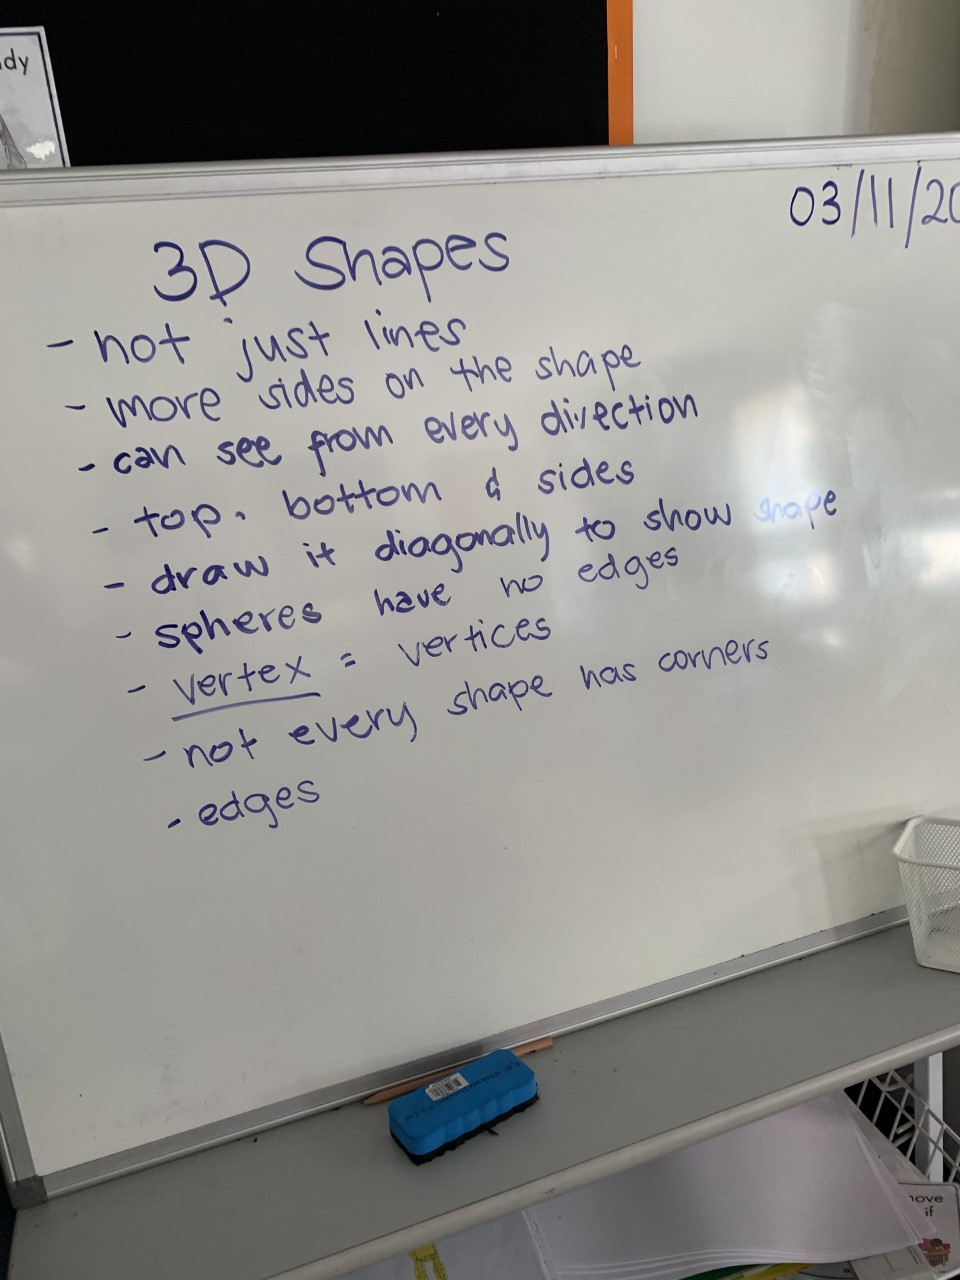 dy
03/11/20
3D Shapes
- not just lines
- more sides on the shape
- can see from every direction
- top. bottom & sides
- draw it diagonally to show shape
- spheres have no edges
- vertex = vertices
- not every shape has corners
- edges
ove
if